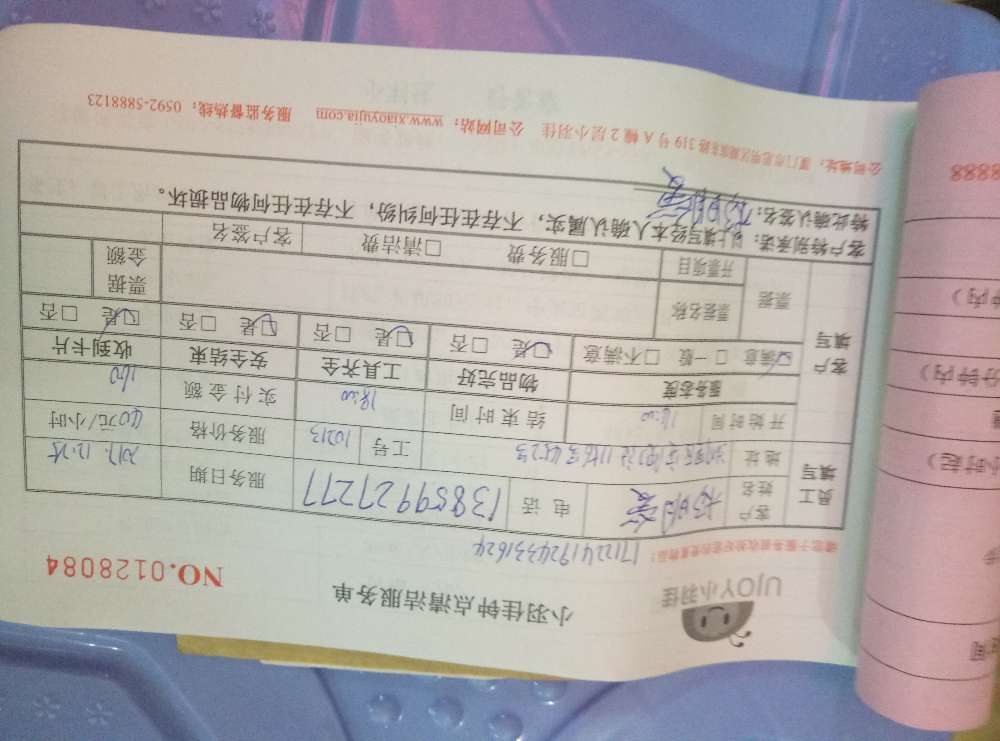 UJOY小羽佳
小羽佳钟点清洁服务单
NO.0128084
请您于服务前收妥您的贵重物品：
17122419243316 24
员工填写
客户姓名
电话 13859927277
服务日期 2017.12.25
地址
工号 10213
服务价格 40元/小时
开始时间
结束时间 18:00
实付金额 160
客户填写
服务态度 物品完好 工具齐全 安全结束 收到卡片
☑满意 □一般 □不满意 ☑是 □否 ☑是 □否 ☑是 □否 ☑是 □否
票据
票据名称
票据金额
开票项目 □服务费 □清洁费 客户签名
客户特别承诺：以上填写经本人确认属实，不存在任何纠纷，不存在任何物品损坏。
特此确认签名：
公司地址：厦门市思明区 319号A幢2层小羽佳 公司网站：www.xiaoyujia.com 服务监督热线：0592-5888123
8888
钟内）
分钟内）
小时起）
间